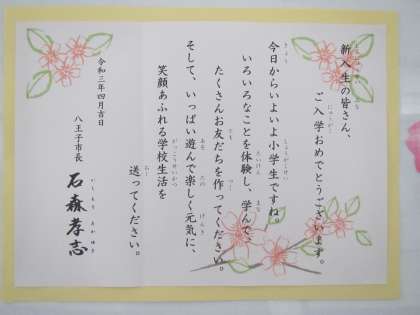 新入生の皆さん、
ご入学おめでとうございます。
今日からいよいよ小学生ですね。
いろいろなことを体験し、学んで、
たくさんお友だちを作ってください。
そして、いっぱい遊んで楽しく元気に、
笑顔あふれる学校生活を
送ってください。
令和三年四月吉日
八王子市長
石森孝志